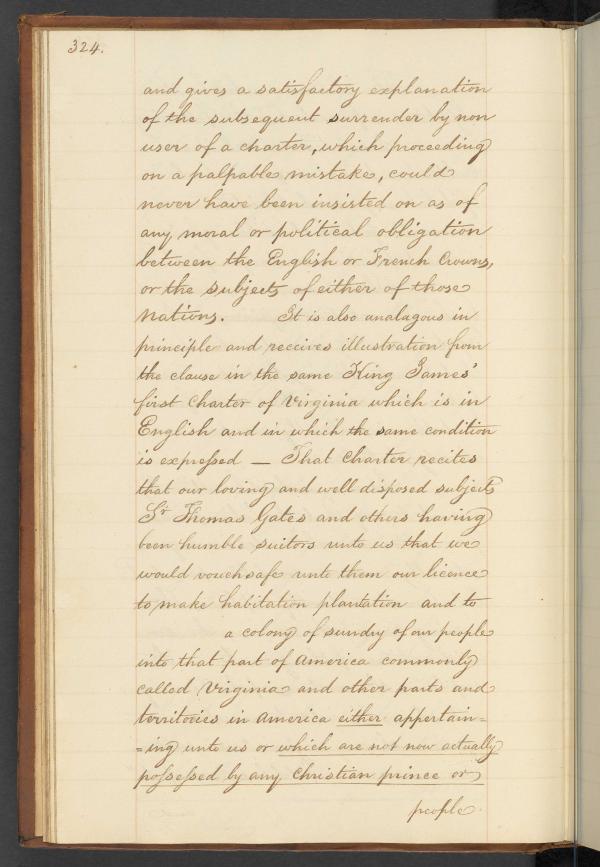 324.
and gives a satisfactory explanation
of the subsequent surrender by non
user of a charter, which proceeding
on a palpable mistake, could
never have been insisted on as of
any moral or political obligation
between the English or French Crowns,
or the subjects of either of those
Nations. It is also analagous in
principle and receives illustration from
the clause in the same King James'
first Charter of Virginia which is in
English and in which the same condition
is expressed — That Charter recites
that our loving and well disposed subjects
Sr Thomas Gates and others having
been humble suitors unto us that we
would vouchsafe unto them our licence
to make habitation plantation and to
a colony of sundry of our people
into that part of America commonly
called Virginia and other parts and
territories in America either appertain=
=ing unto us or which are not now actually
possessed by any Christian prince or
people